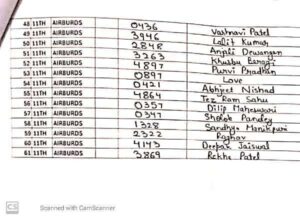 48 11TH AIRBURDS 0436 Vashnavi Patel
49 11TH AIRBURDS 3946 Lalit Kumar
50 11TH AIRBURDS 2848 Anjali Dewangan
51 11TH AIRBURDS 3263 Khusbu
52 11TH AIRBURDS 4897 Purvi Pradhan
53 11TH AIRBURDS 0897 Love
54 11TH AIRBURDS 0421 Abhijeet Nishad
55 11TH AIRBURDS 4864 Tez Ram Sahu
56 11TH AIRBURDS 0357 Dilip Maheswari
57 11TH AIRBURDS 0347 Sholok Pandey
58 11TH AIRBURDS 1328 Sandhya Manikpuri
59 11TH AIRBURDS 2322 Raghav
60 11TH AIRBURDS 4143 Deepak Jaiswal
61 11TH AIRBURDS 3869 Rekha Patel
CS Scanned with CamScanner